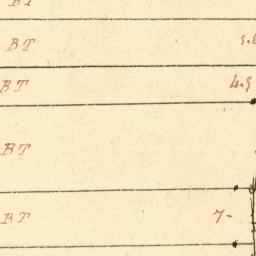 BT
BT
BT 4.9
BT
BT 7-